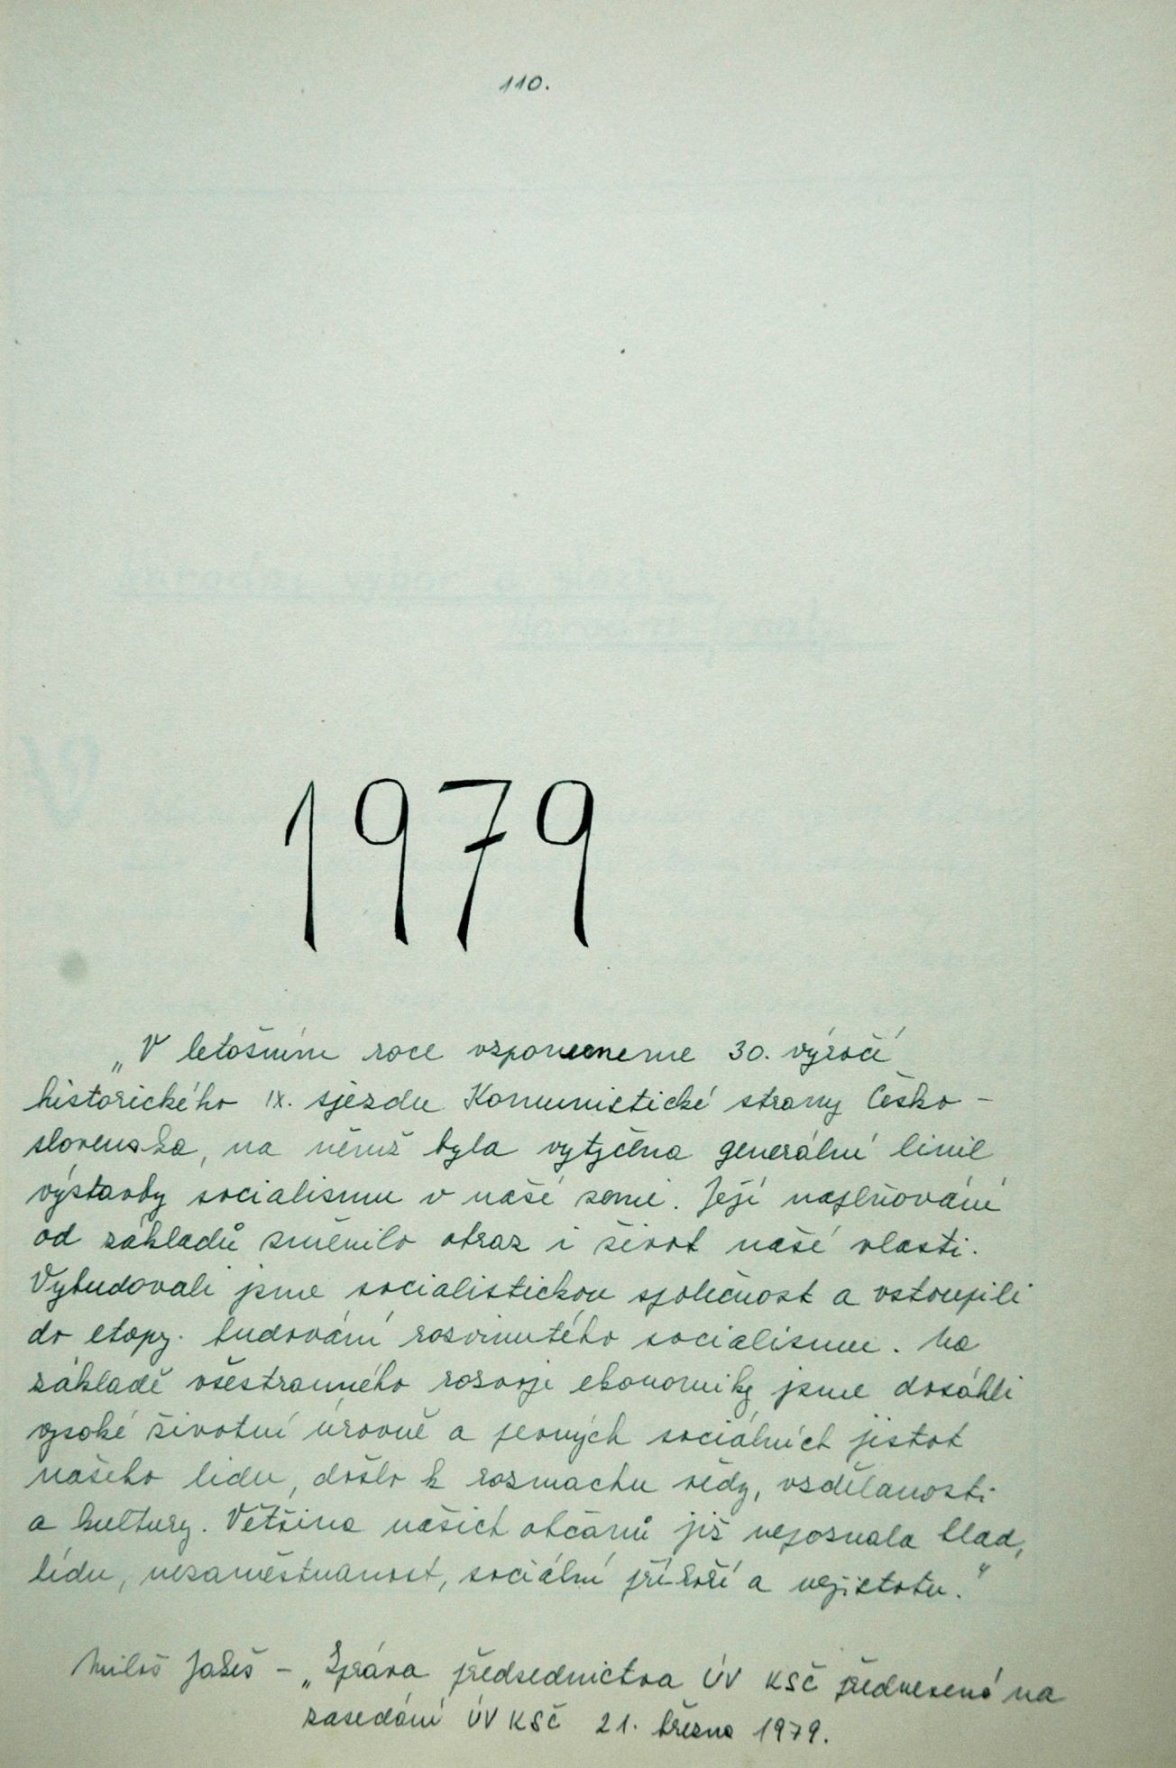 110.
1979
„V letošním roce vzpomeneme 30. výročí
historického IX. sjezdu Komunistické strany Česko-
slovenska, na němž byla vytyčena generální linie
výstavby socialismu v naší zemi. Její naplňování
od základů změnilo obraz i život naší vlasti.
Vybudovali jsme socialistickou společnost a vstoupili
do etapy budování rozvinutého socialismu. Na
základě všestranného rozvoje ekonomiky jsme dosáhli
vysoké životní úrovně a pevných sociálních jistot
našeho lidu, došlo k rozmachu vědy, vzdělanosti
a kultury. Většina našich občanů již nepoznala hlad,
bídu, nezaměstnanost, sociální příkoří a nejistotu."
Miloš Jakeš – „Zpráva předsednictva ÚV KSČ přednesená na
zasedání ÚV KSČ 21. března 1979.